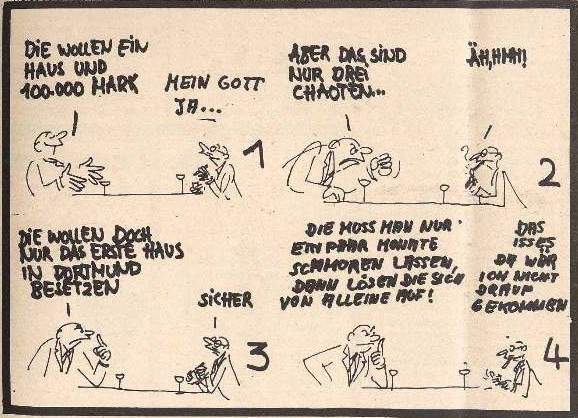 DIE WOLLEN EIN
HAUS UND
100.000 MARK
MEIN GOTT
JA...
1
ABER DAS SIND
NUR DREI
CHAOTEN...
ÄH, HMH!
2
DIE WOLLEN DOCH
NUR DAS ERSTE HAUS
IN DORTMUND
BESETZEN
SICHER
3
DIE MUSS MAN NUR
EIN PAAR MONATE
SCHMOREN LASSEN,
DANN LÖSEN DIE SICH
VON ALLEINE AUF!
DAS
ISSES
DA WÄR
ICH NICHT
DRAUF
GEKOMMEN
4